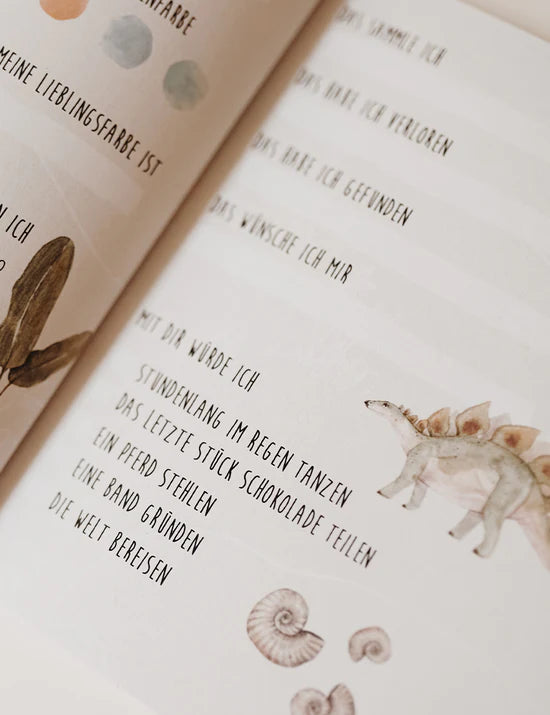 MEINE LIEBLINGSFARBE IST
ICH
DAS SAMMLE ICH
DAS HABE ICH VERLOREN
DAS HABE ICH GEFUNDEN
DAS WÜNSCHE ICH MIR
MIT DIR WÜRDE ICH
STUNDENLANG IM REGEN TANZEN
DAS LETZTE STÜCK SCHOKOLADE TEILEN
EIN PFERD STEHLEN
EINE BAND GRÜNDEN
DIE WELT BEREISEN